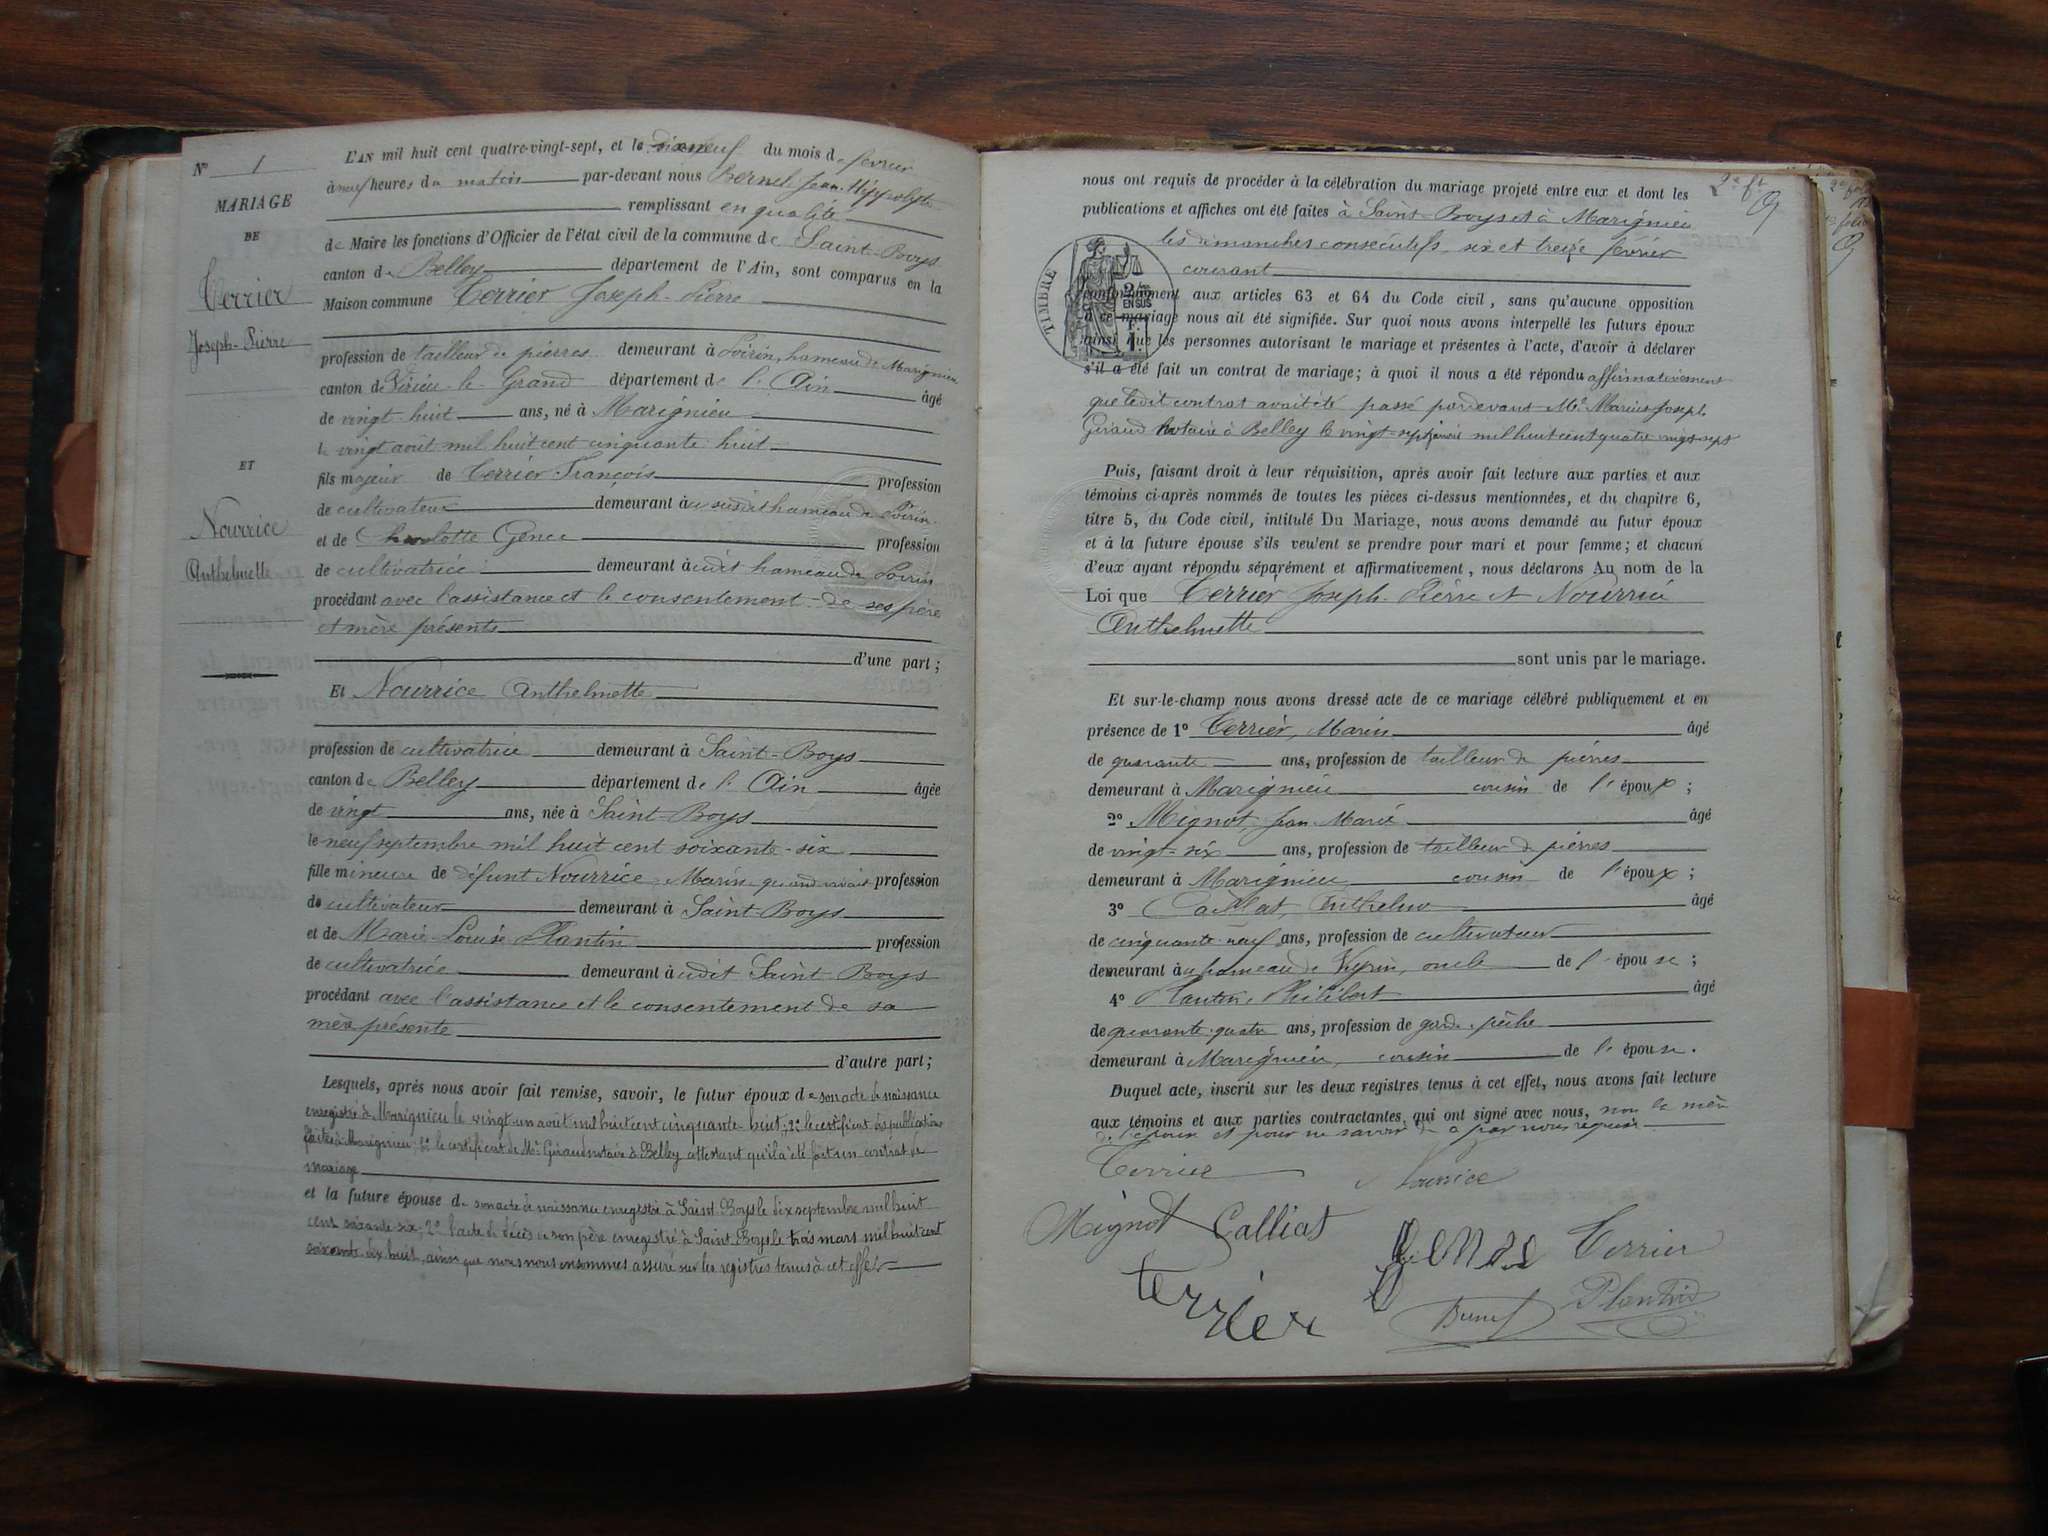 N° 1
MARIAGE
DE
Terrier
Joseph-Pierre
ET
Nourrice
Anthelmette
L'AN mil huit cent quatre-vingt-sept, et le dix neuf du mois de février
à neuf heures du matin par-devant nous Bernel Jean Hippolyte
remplissant en qualité
de Maire les fonctions d'Officier de l'état civil de la commune de Saint-Boys
canton de Belley département de l'Ain, sont comparus en la
Maison commune Terrier Joseph-Pierre
profession de tailleur de pierres demeurant à Poirin, hameau de Marignieu
canton de Virieu-le-Grand département de l'Ain âgé
de vingt-huit ans, né à Marignieu
le vingt août mil huit cent cinquante-huit
fils majeur de Terrier François profession
de cultivateur demeurant au susdit hameau de Poirin
et de Charlotte Genee profession
de cultivatrice demeurant audit hameau de Poirin
procédant avec l'assistance et le consentement de ses père
et mère présents
d'une part;
Et Nourrice Anthelmette
profession de cultivatrice demeurant à Saint-Boys
canton de Belley département de l'Ain âgée
de vingt ans, née à Saint-Boys
le neuf septembre mil huit cent soixante-six
fille mineure de défunt Nourrice Marin quand vivait profession
de cultivateur demeurant à Saint-Boys
et de Marie Louise Plantin profession
de cultivatrice demeurant audit Saint Boys
procédant avec l'assistance et le consentement de sa
mère présente
d'autre part;
Lesquels, après nous avoir fait remise, savoir, le futur époux de son acte de naissance
enregistré à Marignieu le vingt-un août mil huit cent cinquante-huit; 2° le certificat des publications
faites à Marignieu; 3° le certificat de Me Giraud notaire à Belley attestant qu'il a été fait un contrat de
mariage
et la future épouse de son acte de naissance enregistré à Saint-Boys le dix septembre mil huit
cent soixante-six. 2° l'acte de décès de son père enregistré à Saint Boys le trois mars mil huit cent
soixante dix huit, ainsi que nous nous en sommes assuré sur les registres tenus à cet effet
nous ont requis de procéder à la célébration du mariage projeté entre eux et dont les
publications et affiches ont été faites à Saint-Boys et à Marignieu
les dimanches consécutifs, six et treize février
courant
TIMBRE
EN SUS
conformément aux articles 63 et 64 du Code civil, sans qu'aucune opposition
à ce mariage nous ait été signifiée. Sur quoi nous avons interpellé les futurs époux
ainsi que les personnes autorisant le mariage et présentes à l'acte, d'avoir à déclarer
s'il a été fait un contrat de mariage; à quoi il nous a été répondu affirmativement
que ledit contrat avait été passé pardevant Me Marius Joseph
Giraud notaire à Belley le vingt-sept janvier mil huit cent quatre vingt-sept
Puis, faisant droit à leur réquisition, après avoir fait lecture aux parties et aux
témoins ci-après nommés de toutes les pièces ci-dessus mentionnées, et du chapitre 6,
titre 5, du Code civil, intitulé Du Mariage, nous avons demandé au futur époux
et à la future épouse s'ils veulent se prendre pour mari et pour femme; et chacun
d'eux ayant répondu séparément et affirmativement, nous déclarons Au nom de la
Loi que Terrier Joseph-Pierre et Nourrice
Anthelmette
sont unis par le mariage.
Et sur-le-champ nous avons dressé acte de ce mariage célébré publiquement et en
présence de 1° Terrier, Marin âgé
de quarante ans, profession de tailleur de pierres
demeurant à Marignieu cousin de l'époux;
2° Mignot, Jean-Marie âgé
de vingt-six ans, profession de tailleur de pierres
demeurant à Marignieu cousin de l'époux;
3° Calliat, Anthelme âgé
de cinquante-neuf ans, profession de cultivateur
demeurant au hameau de oncle de l'épouse;
4° Plantin, Philibert âgé
de quarante-quatre ans, profession de garde-pêche
demeurant à Marignieu, cousin de l'épouse.
Duquel acte, inscrit sur les deux registres tenus à cet effet, nous avons fait lecture
aux témoins et aux parties contractantes, qui ont signé avec nous, non la mère
de l'épouse et pour ne savoir de ce par nous requise
Terrier Nourrice
Mignot Calliat Genee Terrier
terrier Bernel Plantin